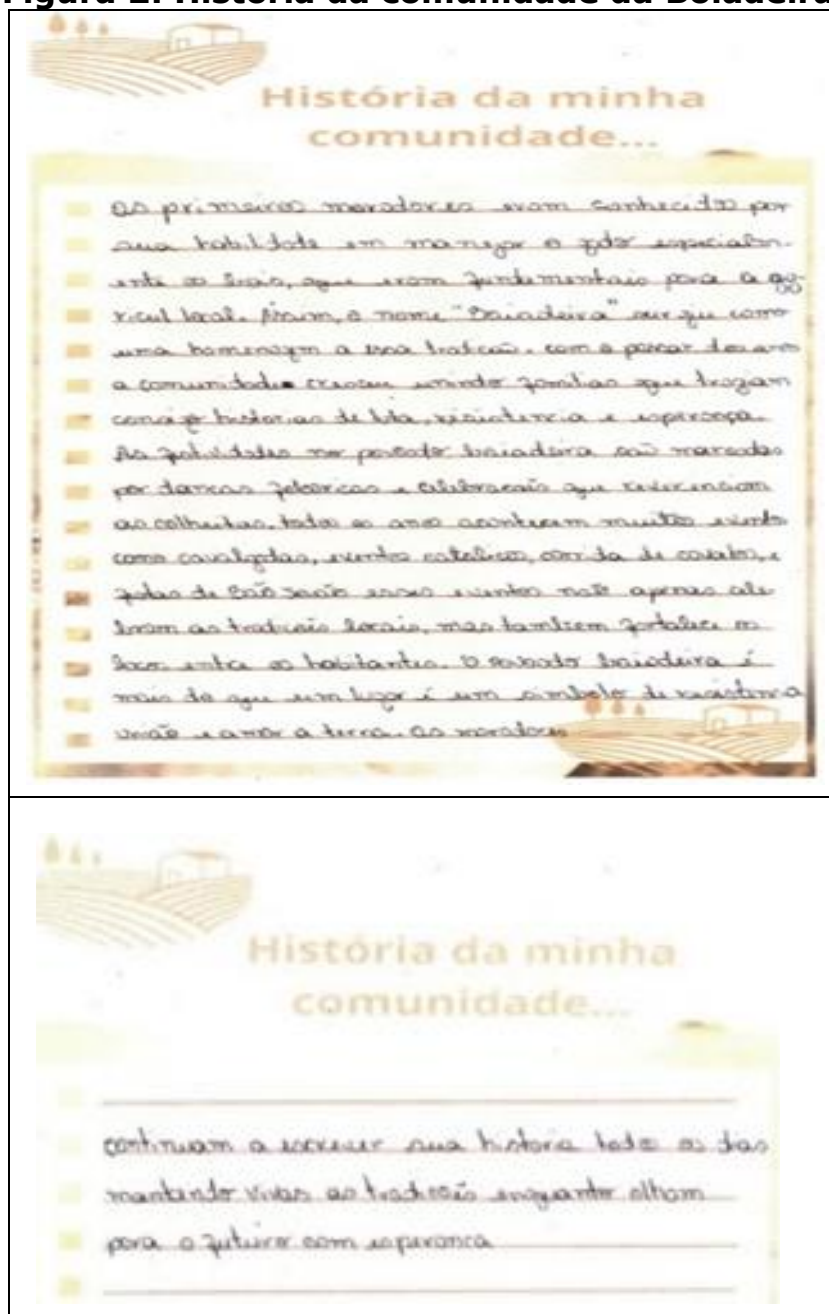 Figura 2: História da comunidade da Boiadeira
História da minha
comunidade...
os primeiros moradores eram conhecidos por
sua habilidade em manejar o gado especialm-
ente os bois, que eram fundementais para a ag-
ricul local. Assim, o nome "Boiadeira" surgiu como
uma homenagem a essa tradicão. com o passar dos anos
a comunidade cresceu unindo familias que trazam
consigo historias de luta, resistencia e esperança.
As festividades no povoado boiadeira saõ marcadas
por dancas folcoricas e celebracoẽs que reverenciam
as colheitas. todos os anos acontecem muitos evento
como cavalgadas, eventos catolicos, corrida de cavalos, e
festas de São João esses eventos naõ apenas cele
bram as tradicoẽs locais, mas tambem fortalece os
lacos entre os habitantes. O povoado boiadeira é
mais do que um lugar é um simbolo de resistencia
uniaõ e amor a terra. os moradores
História da minha
comunidade...
continuam a escrever sua historia todo os dias
mantendo vivas as tradicoẽs enquanto olham
para o futuro com esperanca